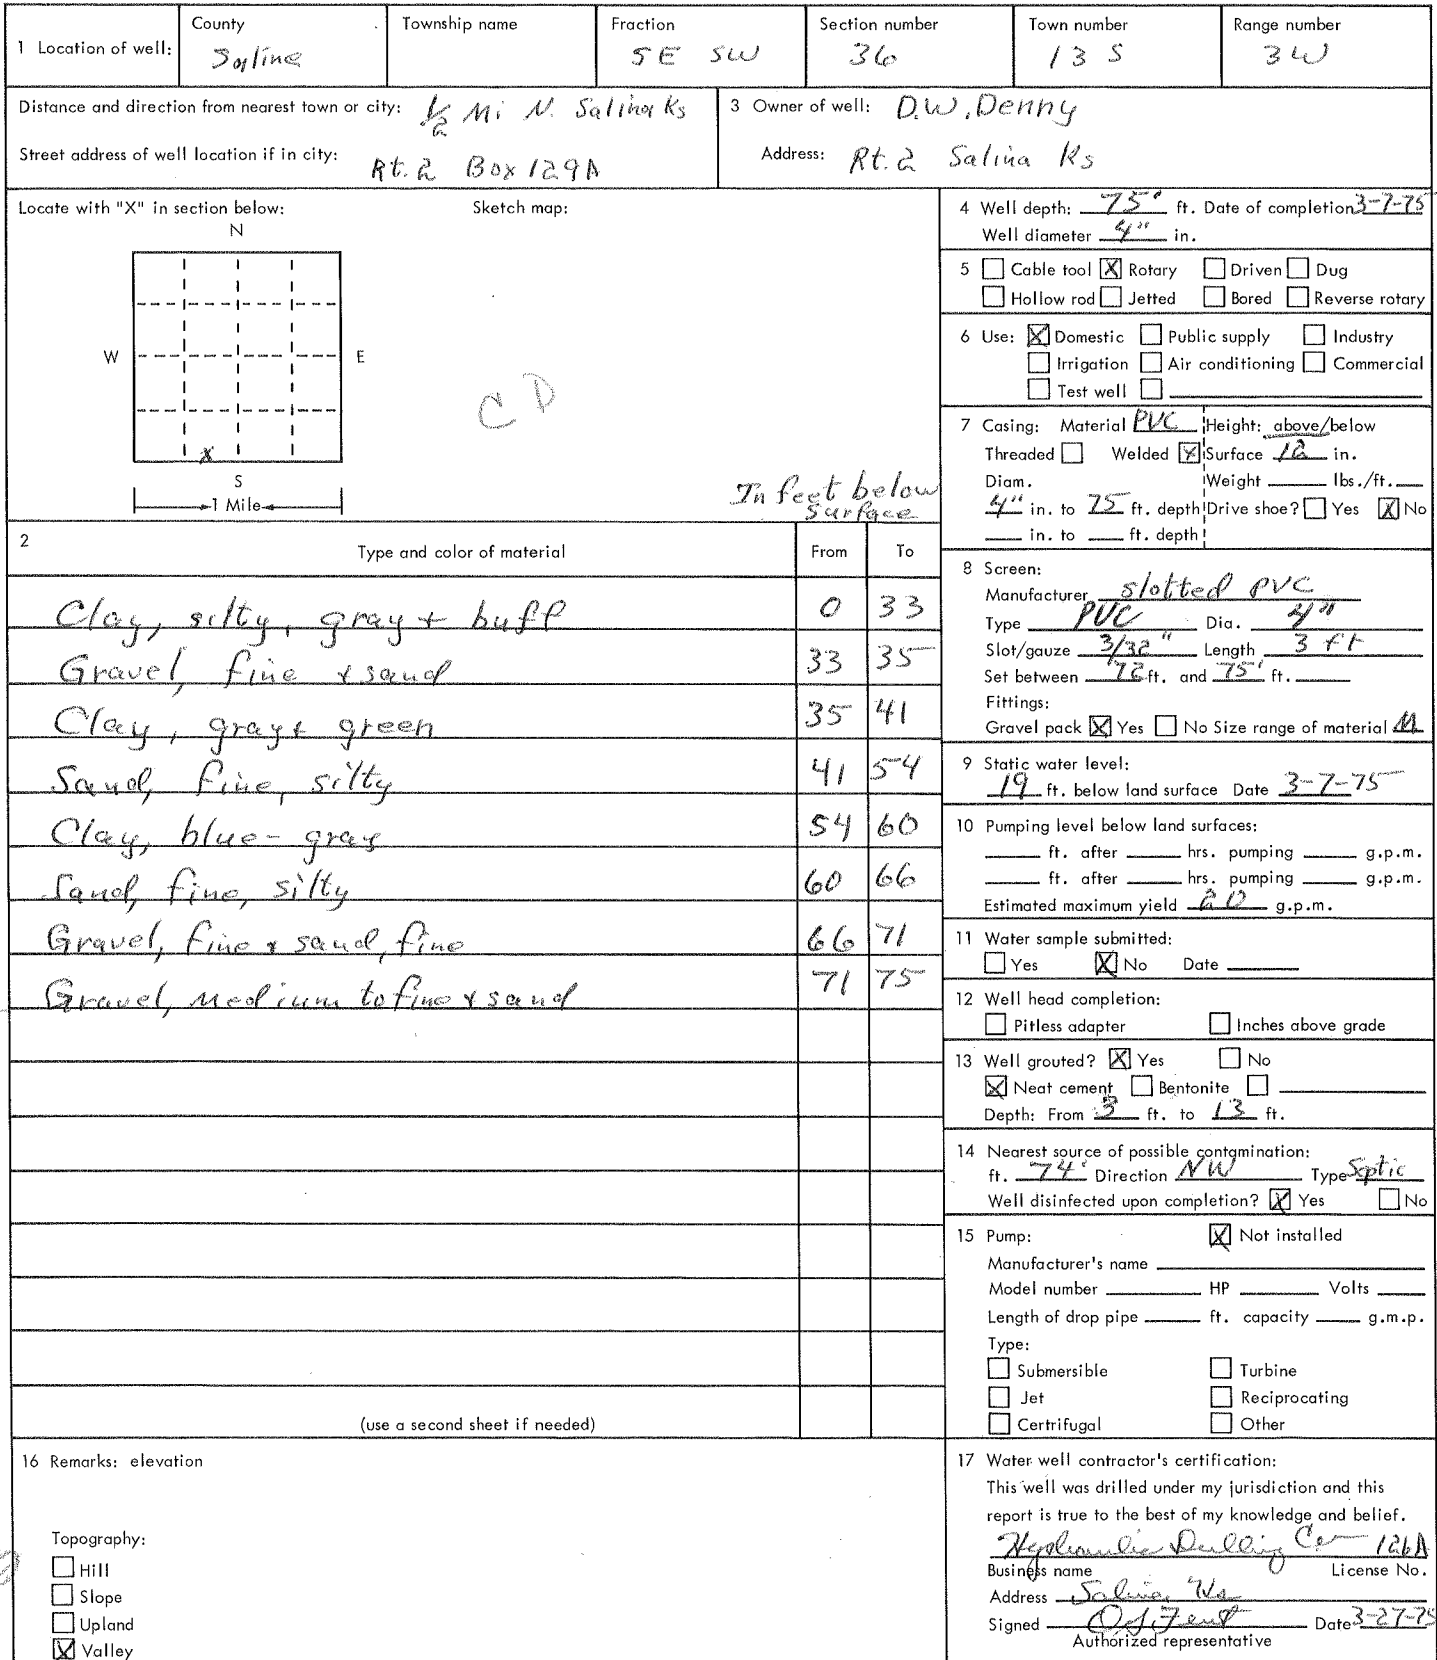 1 Location of well: County Saline Township name Fraction SE SW Section number 36 Town number 13 S Range number 3W
Distance and direction from nearest town or city: 1/2 Mi N. Salina Ks
Street address of well location if in city: Rt. 2 Box 129A
3 Owner of well: D.W. Denny
Address: Rt. 2 Salina Ks
Locate with "X" in section below: Sketch map:
N
W E
X
S
1 Mile
C D
In feet below
surface
2 Type and color of material From To
Clay, silty, gray + buff 0 33
Gravel, fine + sand 33 35
Clay, gray + green 35 41
Sand, fine, silty 41 54
Clay, blue-gray 54 60
Sand, fine, silty 60 66
Gravel, fine + sand, fine 66 71
Gravel, medium to fine + sand 71 75
(use a second sheet if needed)
4 Well depth: 75' ft. Date of completion 3-7-75
Well diameter 4" in.
5 Cable tool X Rotary Driven Dug
Hollow rod Jetted Bored Reverse rotary
6 Use: X Domestic Public supply Industry
Irrigation Air conditioning Commercial
Test well
7 Casing: Material PVC Height: above/below
Threaded Welded X Surface 12 in.
Diam. Weight lbs./ft.
4" in. to 75 ft. depth Drive shoe? Yes X No
in. to ft. depth
8 Screen:
Manufacturer slotted PVC
Type PVC Dia. 4"
Slot/gauze 3/32" Length 3 ft
Set between 72 ft. and 75' ft.
Fittings:
Gravel pack X Yes No Size range of material M
9 Static water level:
19 ft. below land surface Date 3-7-75
10 Pumping level below land surfaces:
ft. after hrs. pumping g.p.m.
ft. after hrs. pumping g.p.m.
Estimated maximum yield 20 g.p.m.
11 Water sample submitted:
Yes X No Date
12 Well head completion:
Pitless adapter Inches above grade
13 Well grouted? X Yes No
X Neat cement Bentonite
Depth: From 3 ft. to 13 ft.
14 Nearest source of possible contamination:
ft. 74' Direction NW Type Septic
Well disinfected upon completion? X Yes No
15 Pump: X Not installed
Manufacturer's name
Model number HP Volts
Length of drop pipe ft. capacity g.m.p.
Type:
Submersible Turbine
Jet Reciprocating
Certrifugal Other
16 Remarks: elevation
Topography:
Hill
Slope
Upland
X Valley
17 Water well contractor's certification:
This well was drilled under my jurisdiction and this
report is true to the best of my knowledge and belief.
Hydraulic Drilling Co 126A
Business name License No.
Address Salina, Ks
Signed Date 3-27-75
Authorized representative